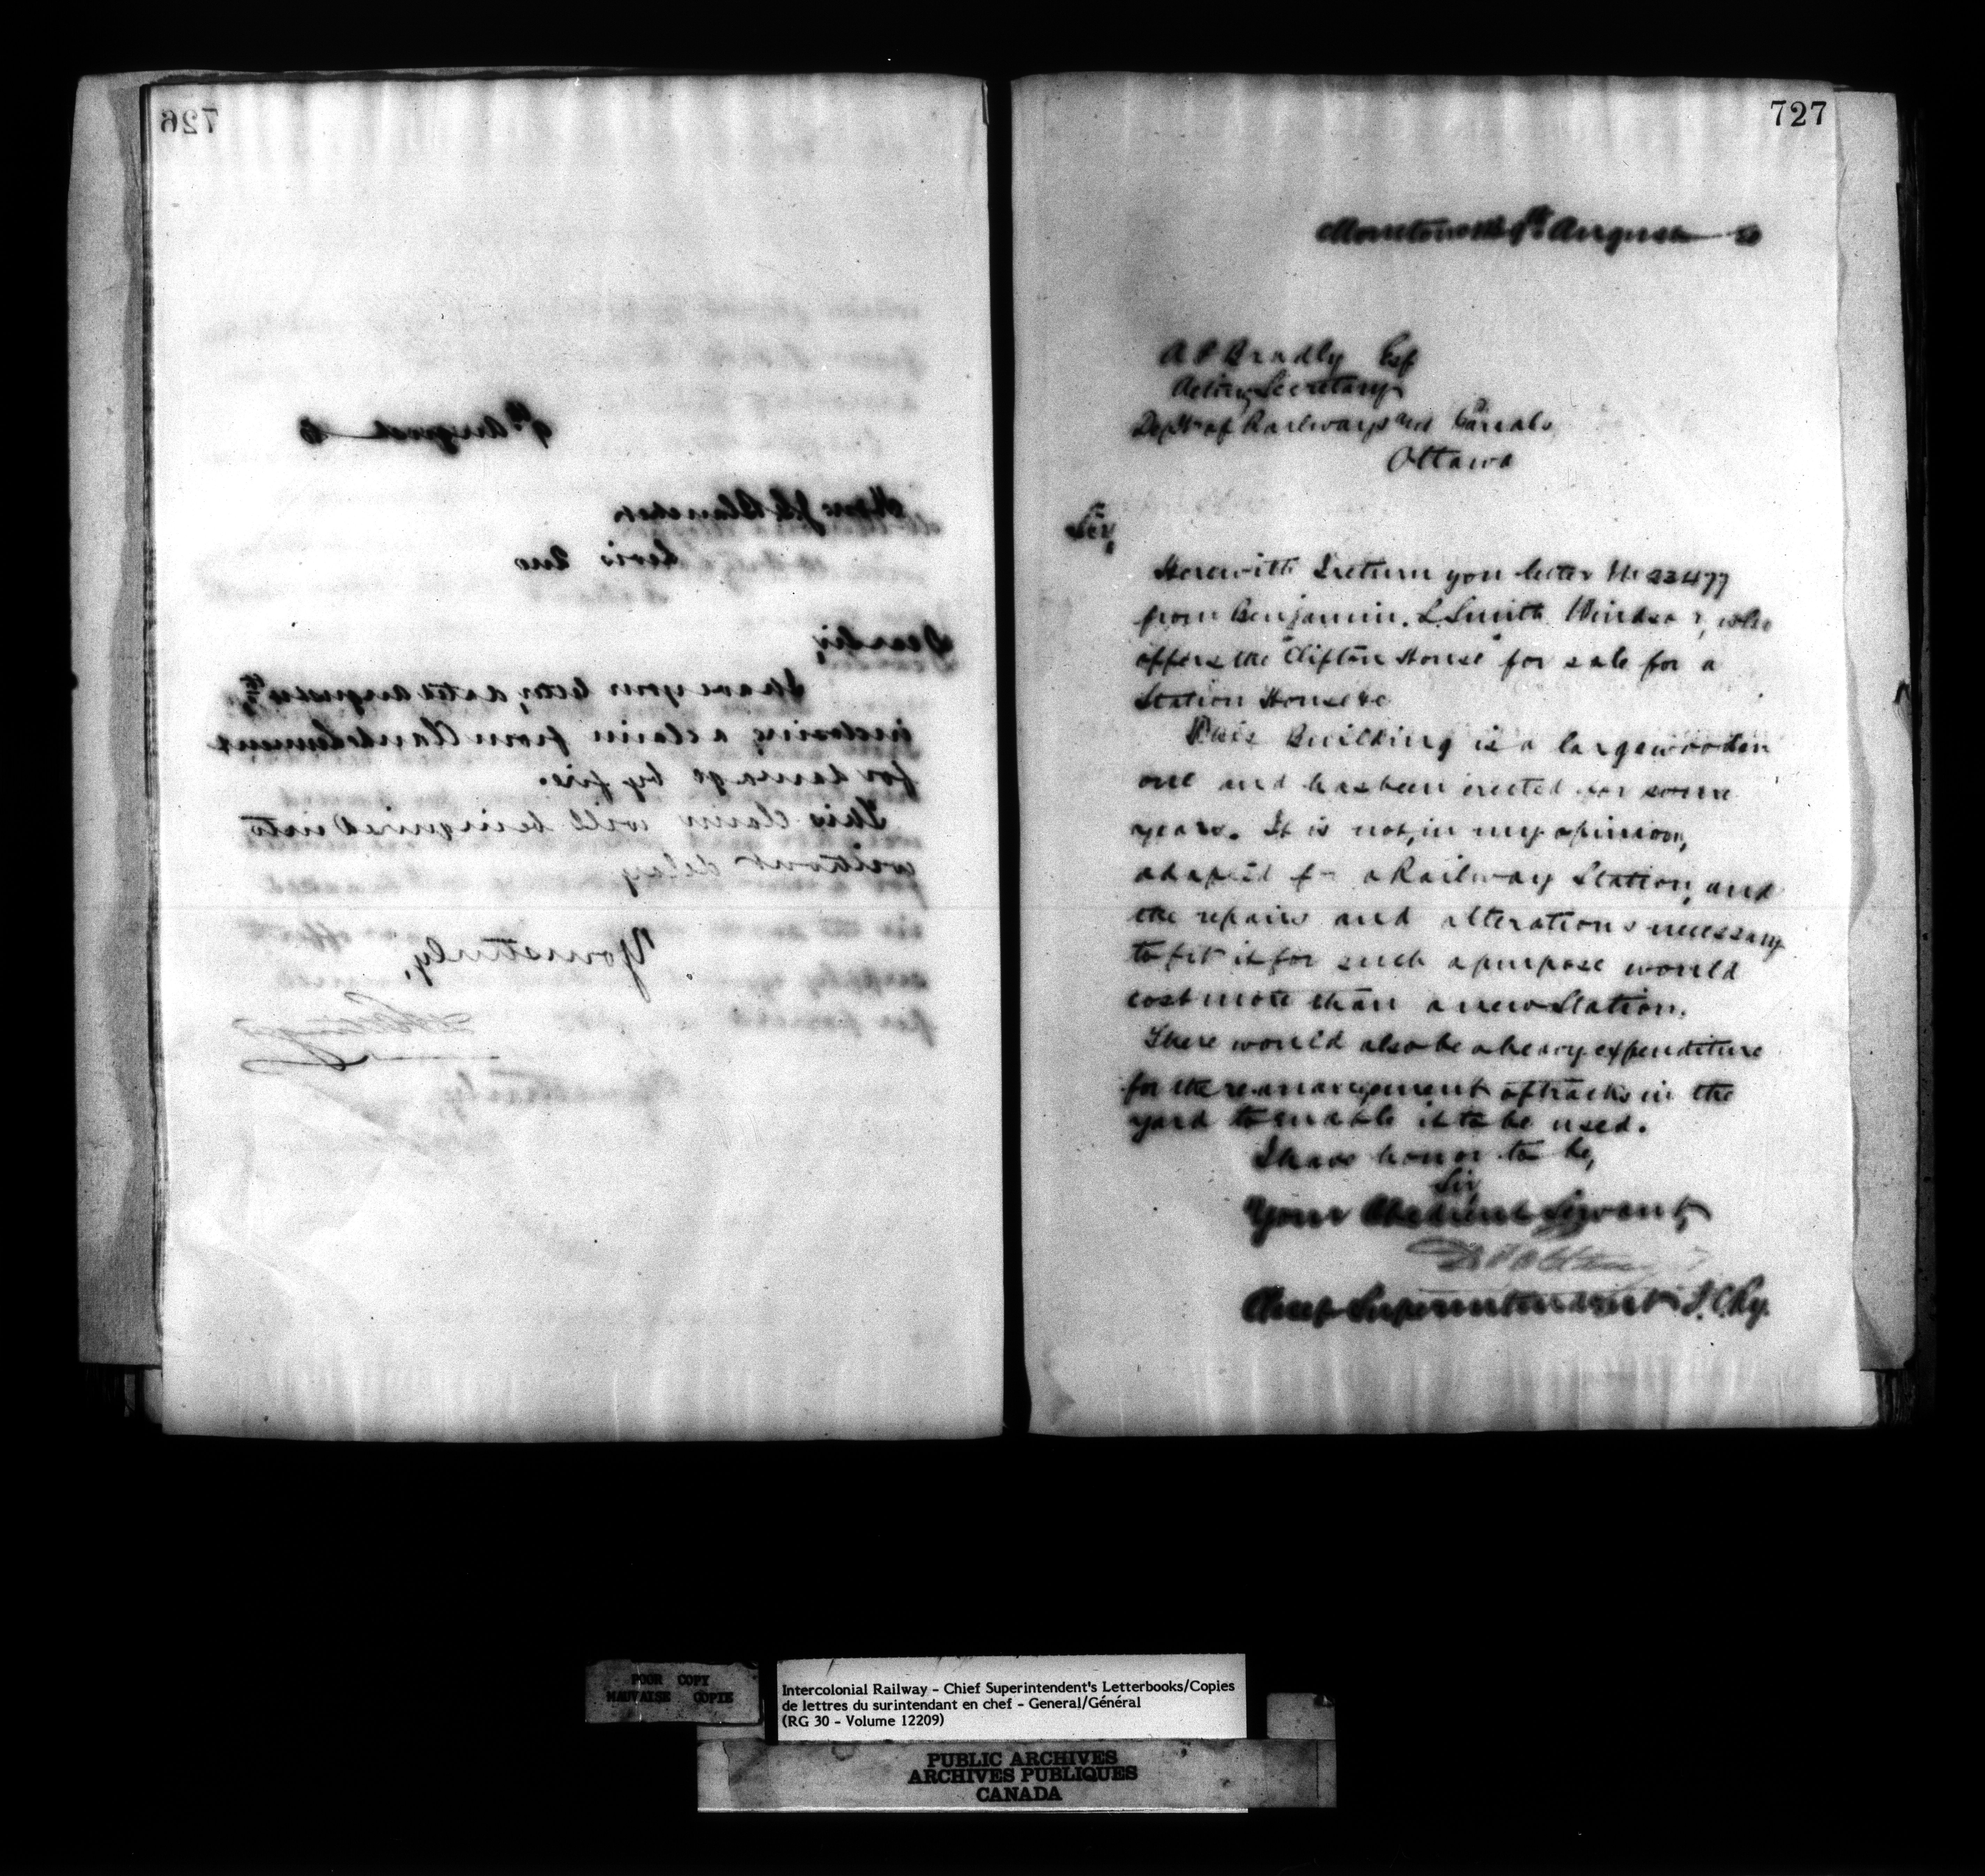 726
9th August 80
Dear Sir,
I have your letter, dated august 4th,
inclosing a claim from
for damage by fire.
This claim will be inquired into
without delay
Yours truly,
727
Moncton NB 9th August 80
A P Bradly Esq
Acting Secretary
Dept of Railways and Canals
Ottawa
Sir,
Herewith I return you letter No 22477
from Benjamin. L. Smith Windsor, who
offers the "Clifton House" for sale for a
Station House &c
This Building is a large wooden
one and has been erected for some
years. It is not, in my opinion,
adapted for a Railway Station, and
the repairs and alterations necessary
to fit it for such a purpose would
cost more than a new Station.
There would also be a heavy expenditure
for the re-arrangement of tracks in the
yard to enable it to be used.
I have honor to be,
Sir
Your Obedient Servant,
Chief Superintendent I.C.Ry.
POOR COPY
MAUVAISE COPIE
Intercolonial Railway - Chief Superintendent's Letterbooks/Copies
de lettres du surintendant en chef - General/Général
(RG 30 - Volume 12209)
PUBLIC ARCHIVES
ARCHIVES PUBLIQUES
CANADA